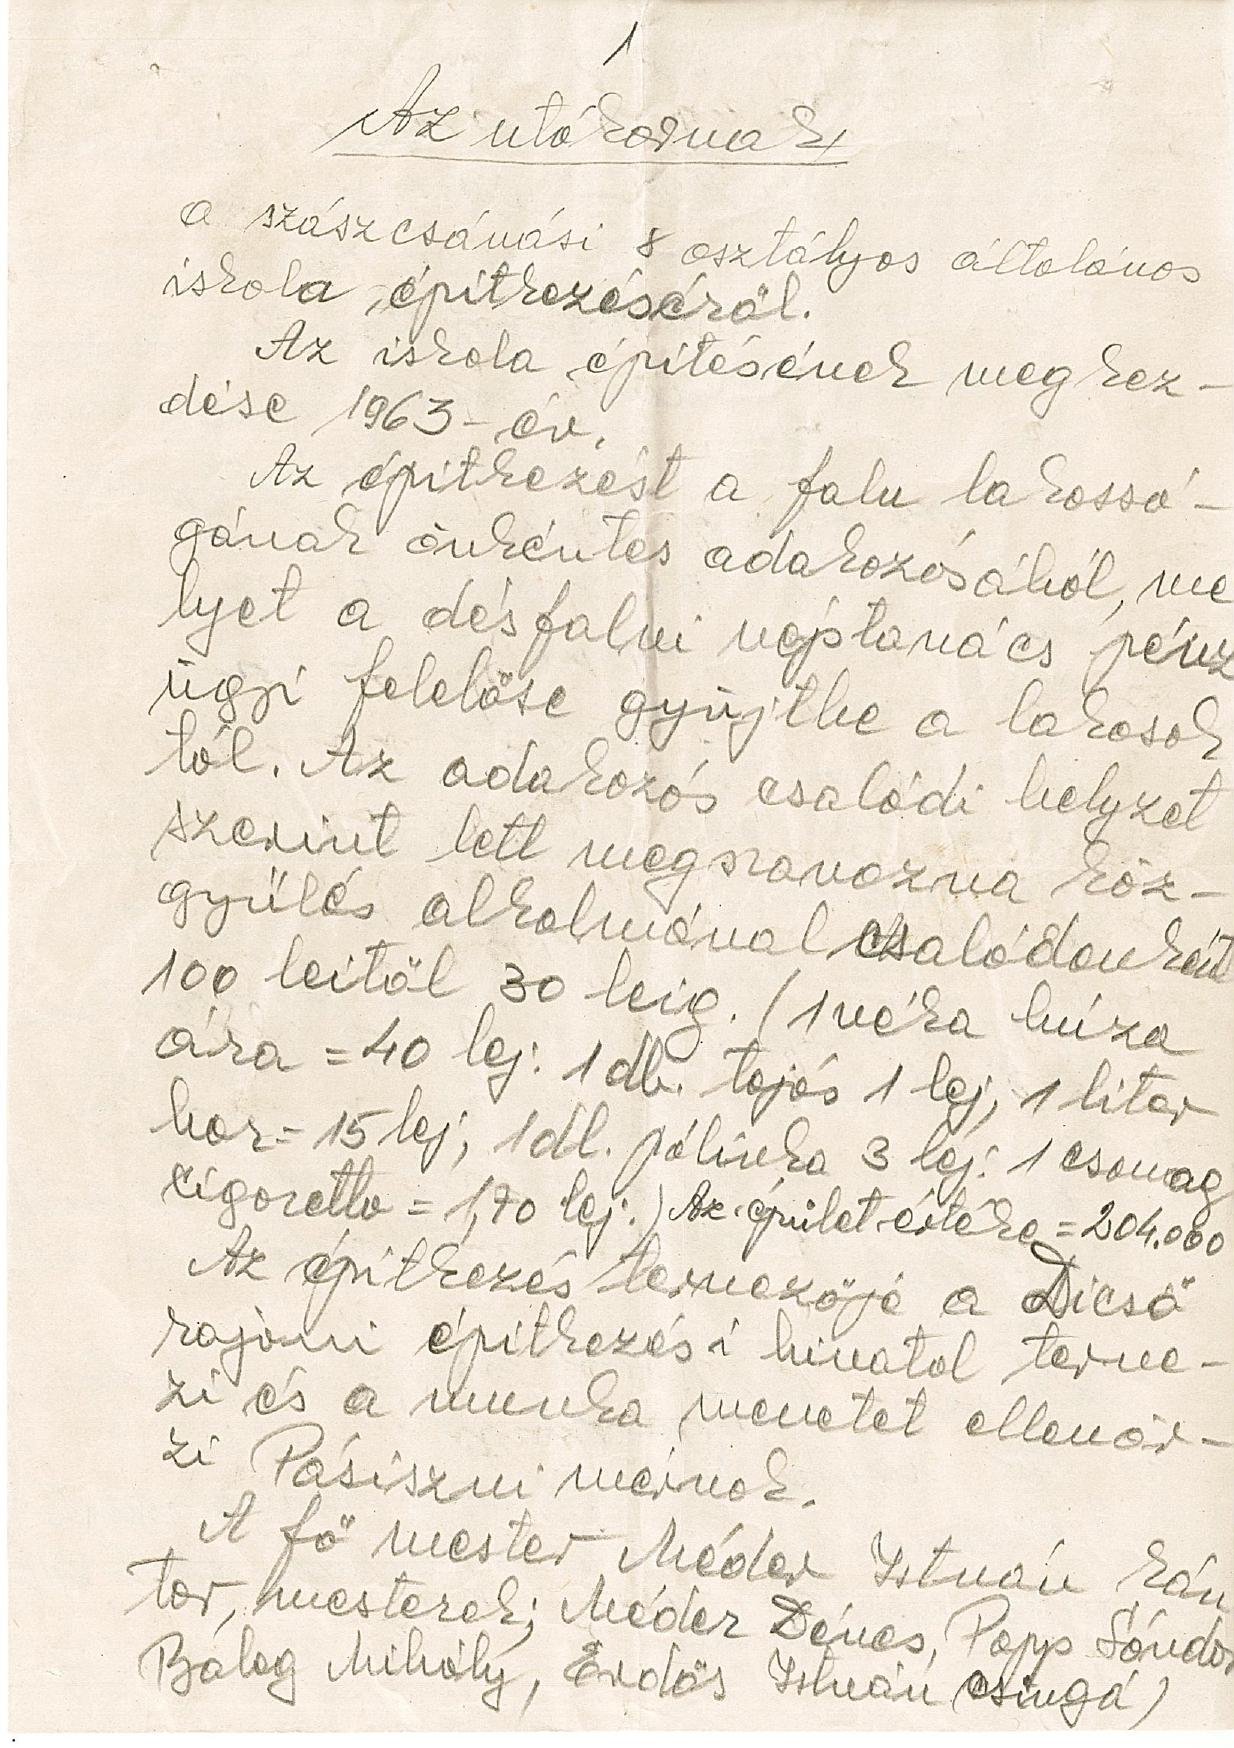 1
Az utókornak
a szászcsávási 8 osztályos általános
iskola építkezéséről.
Az iskola építésének megkez-
dése 1963-év.
Az építkezést a falu lakossá-
gának önkéntes adakozásából, me
lyet a désfalvi néptanács pénz
ügyi felelőse gyűjtbe a lakosok
tól. Az adakozás családi helyzet
szerint lett megszavazva köz-
gyűlés alkalmával családonként
100 leitől 30 leig. (1 véka búza
ára = 40 lej: 1 db. tojás 1 lej, 1 liter
bor = 15 lej, 1 dl. pálinka 3 lej: 1 csomag
cigaretta = 1,70 lej.) Az épület értéke = 204.000
Az építkezés tervezője a Dicső
rajoni építkezési hivatal terve-
zi és a munka menetet ellenőr-
zi Pásiszni mérnök.
A fő mester Méder István kán
tor, mesterek; Méder Dénes, Papp Sándor
Balog Mihály, Erdős István (csingá)